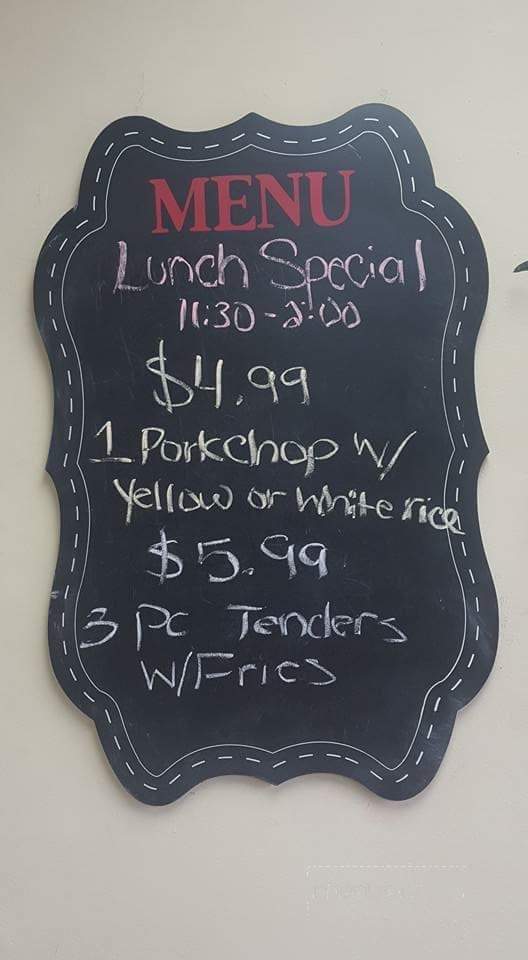 MENU
Lunch Special
11:30-2:00
$4.99
1 Porkchop w/
Yellow or White rice
$5.99
3 Pc Tenders
W/Fries